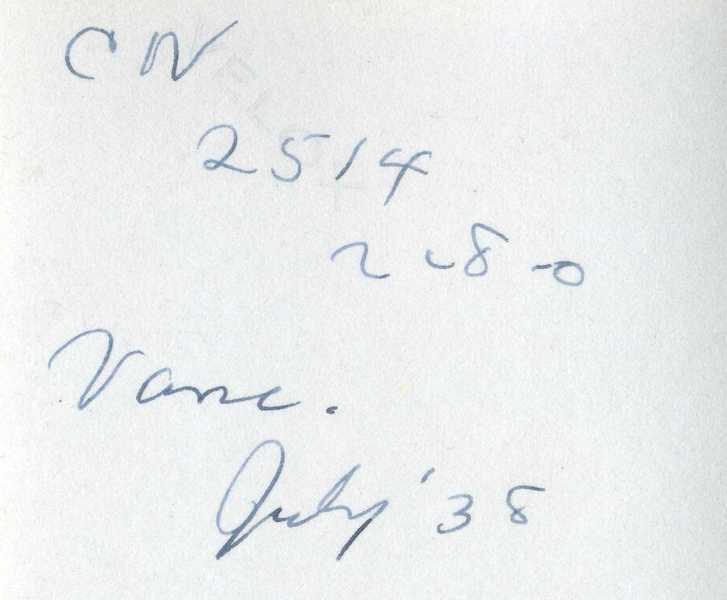 CN
2514
2-8-0
Vanc.
July '38